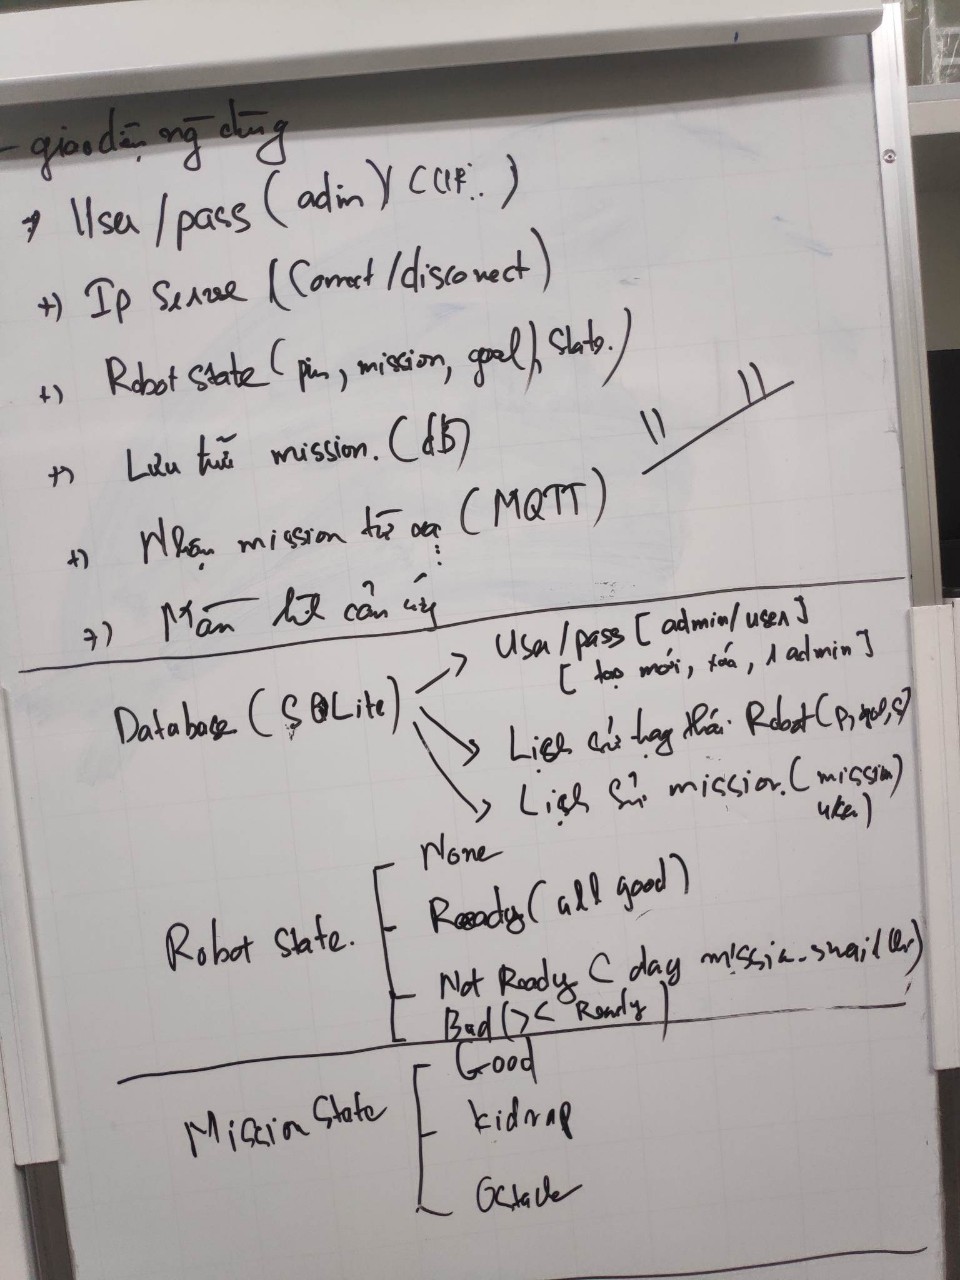 - giao diện ng dùng
+) User / pass (admin)
+) Ip Server (Connect / disconect)
+) Robot state (pin, mission, goal), state.)
+) Lưu trữ mission. (db)
+) Nhận mission từ xa (MQTT)
+) Màn hình cảm ứng
Database (SQLite)
User / pass [ admin / user ]
[ tạo mới, xóa, 1 admin ]
Lịch sử trạng thái Robot (p, goal, s)
Lịch sử mission. (mission
user)
Robot state.
None
Ready (all good)
Not Ready (
Bad (>< Ready)
Mission State
Good
kidnap